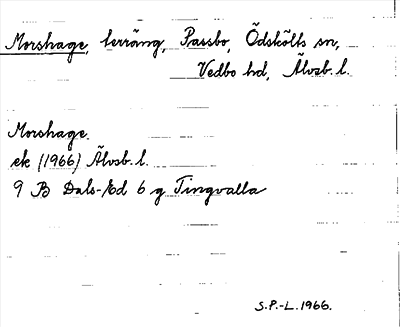 Morshage, terräng, Passbo, Ödskölts sn,
Vedbo hd, Älvsb. l.
Morshage.
ek (1966) Älvsb. l.
9 B Dals-Ed 6 g Tingvalla
S.P.-L. 1966.